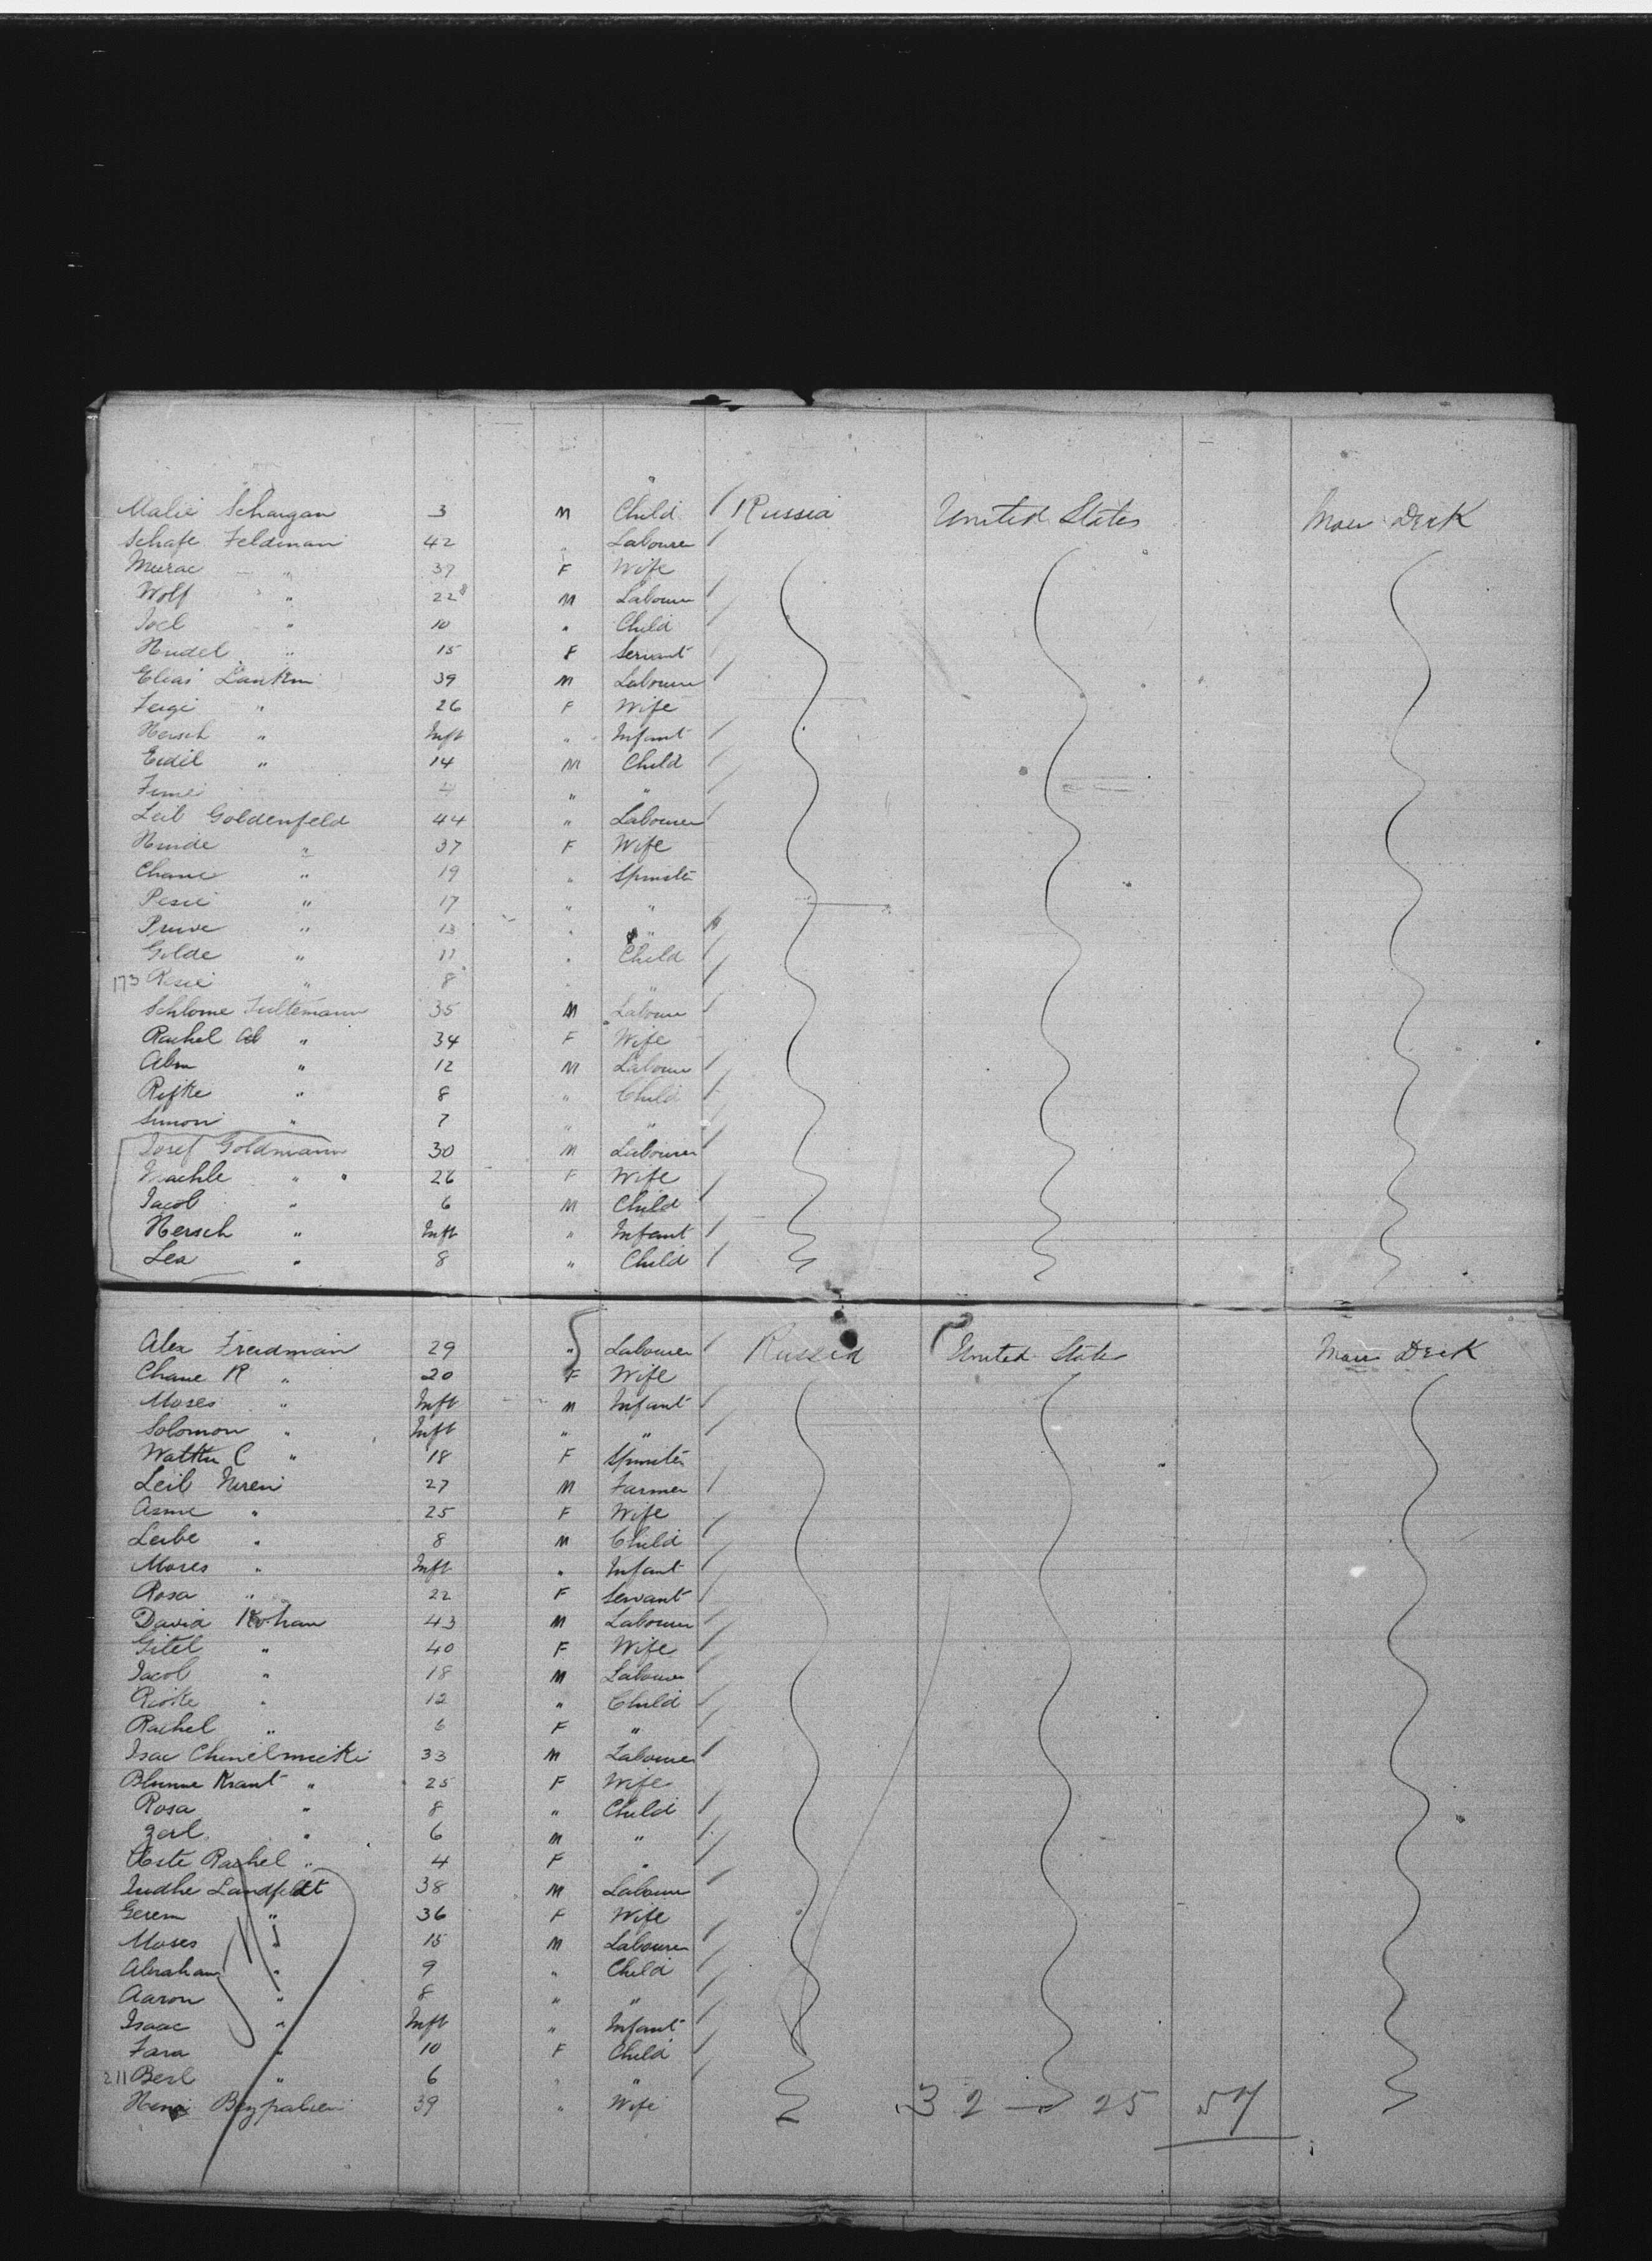 Malie Schargan 3 M Child Russia United States Main Deck
Schafe Feldman 42 " Labourer
37 F Wife
Wolf " 22 M Labourer
Joel " 10 " Child
Hudel " 15 F Servant
Elias 39 M Labourer
Feige " 26 F Wife
Hersch " Inft " Infant
Eidil " 14 M Child
4 " "
Leib Goldenfeld 44 " Labourer
Hinde " 37 F Wife
Chane " 19 " Spinster
Pesie " 17 " "
13 " "
Golde " 11 " Child
173 Rosie " 8 " "
Schlome 35 M Labourer
Rachel Ab " 34 F Wife
Abm " 12 M Labourer
Rifke " 8 " Child
Simon " 7 " "
Josef Goldmann 30 M Labourer
Machle " 26 F Wife
Jacob " 6 M Child
Hersch " Inft " Infant
Lea " 8 " Child
Alex Freidman 29 " Labourer Russia United States Main Deck
Chane R " 20 F Wife
Moses " Inft M Infant
Solomon " Inft " "
C " 18 F Spinster
Leib 27 M Farmer
Asme " 25 F Wife
Leibe " 8 M Child
Moses " Inft " Infant
Rosa " 22 F Servant
David Kohan 43 M Labourer
Gitel " 40 F Wife
Jacob " 18 M Labourer
12 " Child
Rachel " 6 F "
Isac Chmelnicki 33 M Labourer
Blume Krant " 25 F Wife
Rosa " 8 " Child
" 6 M "
Rachel " 4 F "
Judke Landfeldt 38 M Labourer
Gerem " 36 F Wife
Moses " 15 M Labourer
Abraham " 9 " Child
Aaron " 8 " "
Isaac " Inft " Infant
Fara " 10 F Child
211 Berl " 6 " "
39 " Wife 32 — 25 57